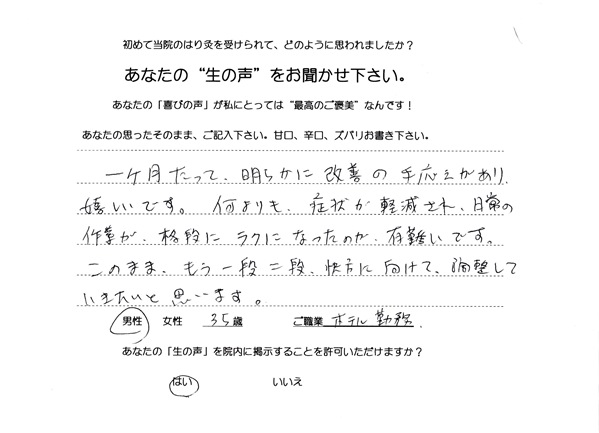 初めて当院のはり灸を受けられて、どのように思われましたか？
あなたの“生の声”をお聞かせ下さい。
あなたの「喜びの声」が私にとっては“最高のご褒美”なんです！
あなたの思ったそのまま、ご記入下さい。甘口、辛口、ズバリお書き下さい。
一ヶ月たって、明らかに改善の手応えがあり、
嬉しいです。何よりも、症状が軽減され、日常の
作業が、格段にラクになったのが、有難いです。
このまま、もう一段二段、快方に向けて、調整して
いきたいと思います。
男性 女性 35歳 ご職業 ホテル勤務.
あなたの「生の声」を院内に掲示することを許可いただけますか？
はい いいえ